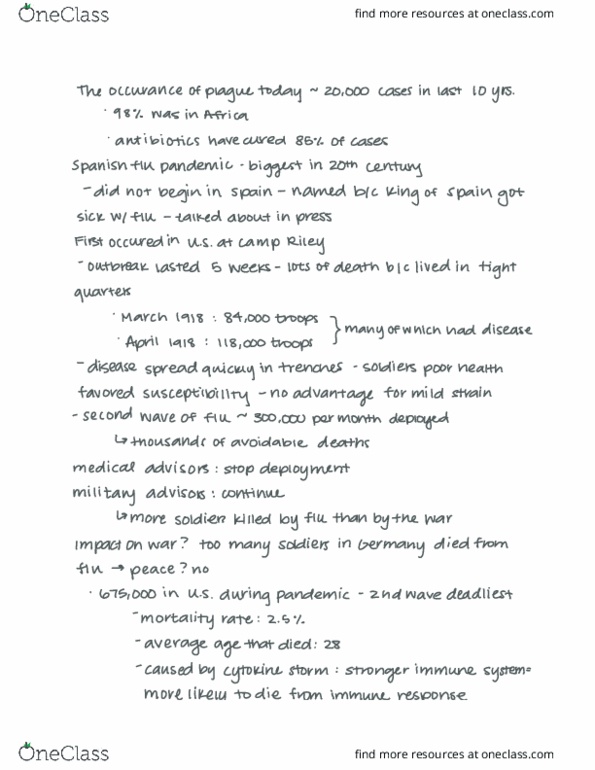 OneClass
find more resources at oneclass.com
The occurance of plague today ~ 20,000 cases in last 10 yrs.
· 98% was in Africa
· antibiotics have cured 85% of cases
Spanish flu pandemic - biggest in 20th century
- did not begin in spain - named b/c King of Spain got
sick w/ flu - talked about in press
First occured in U.S. at Camp Riley
- outbreak lasted 5 weeks - lots of death b/c lived in tight
quarters
· March 1918 : 84,000 troops
} many of which had disease
· April 1918 : 118,000 troops
- disease spread quickly in trenches - soldiers poor health
favored susceptibility - no advantage for mild strain
- second wave of flu ~ 300,000 per month deployed
↳ thousands of avoidable deaths
medical advisors : stop deployment
military advisors : continue
↳ more soldier killed by flu than by the war
impact on war? too many soldiers in Germany died from
flu → peace? no
· 675,000 in U.S. during pandemic - 2nd wave deadliest
- mortality rate: 2.5%
- average age that died: 28
- caused by cytokine storm : stronger immune system=
more likely to die from immune response
OneClass
find more resources at oneclass.com